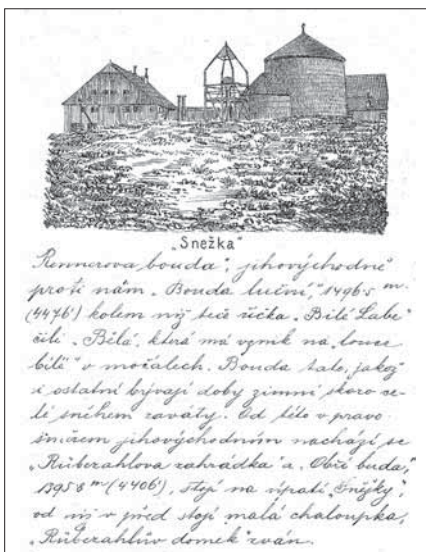 „Snežka“
Rennerova bouda“, jihovýchodně
proti nám „Bouda luční“, 1496·5 m·
(4476') kolem níž teče říčka „Bílé Labe“
čili „Bělá“, která má vznik na „louce
bílé“ v močálech. Bouda tato, jakož
i ostatní bývají doby zimní skoro ce-
lé sněhem zaváty. Od této v pravo
směrem jihovýchodním nachází se
„Rübezahlova zahrádka“ a „Obří buda“,
1395·8 m (4406'), stojí na úpatí „Sněžky“,
od níž v před stojí malá chaloupka,
„Rübezahlův domek“ zván.